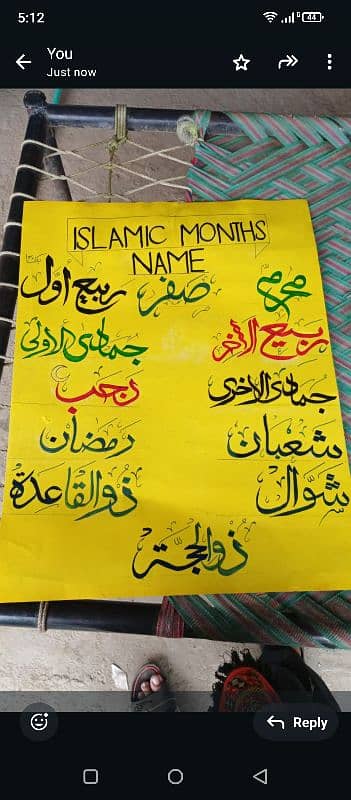 5:12
44
You
Just now
ISLAMIC MONTHS
NAME
محرم صفر ربیع اول
ربیع الآخر جمادی الاولی
جمادی الاخری رجب
شعبان رمضان
شوال ذوالقاعدة
ذوالحجة
Reply